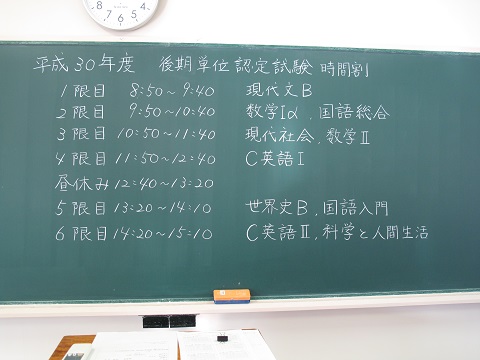 平成30年度 後期単位認定試験 時間割
1限目 8:50～9:40 現代文B
2限目 9:50～10:40 数学Iα、国語総合
3限目 10:50～11:40 現代社会、数学Ⅱ
4限目 11:50～12:40 C英語Ⅰ
昼休み 12:40～13:20
5限目 13:20～14:10 世界史B、国語入門
6限目 14:20～15:10 C英語Ⅱ、科学と人間生活